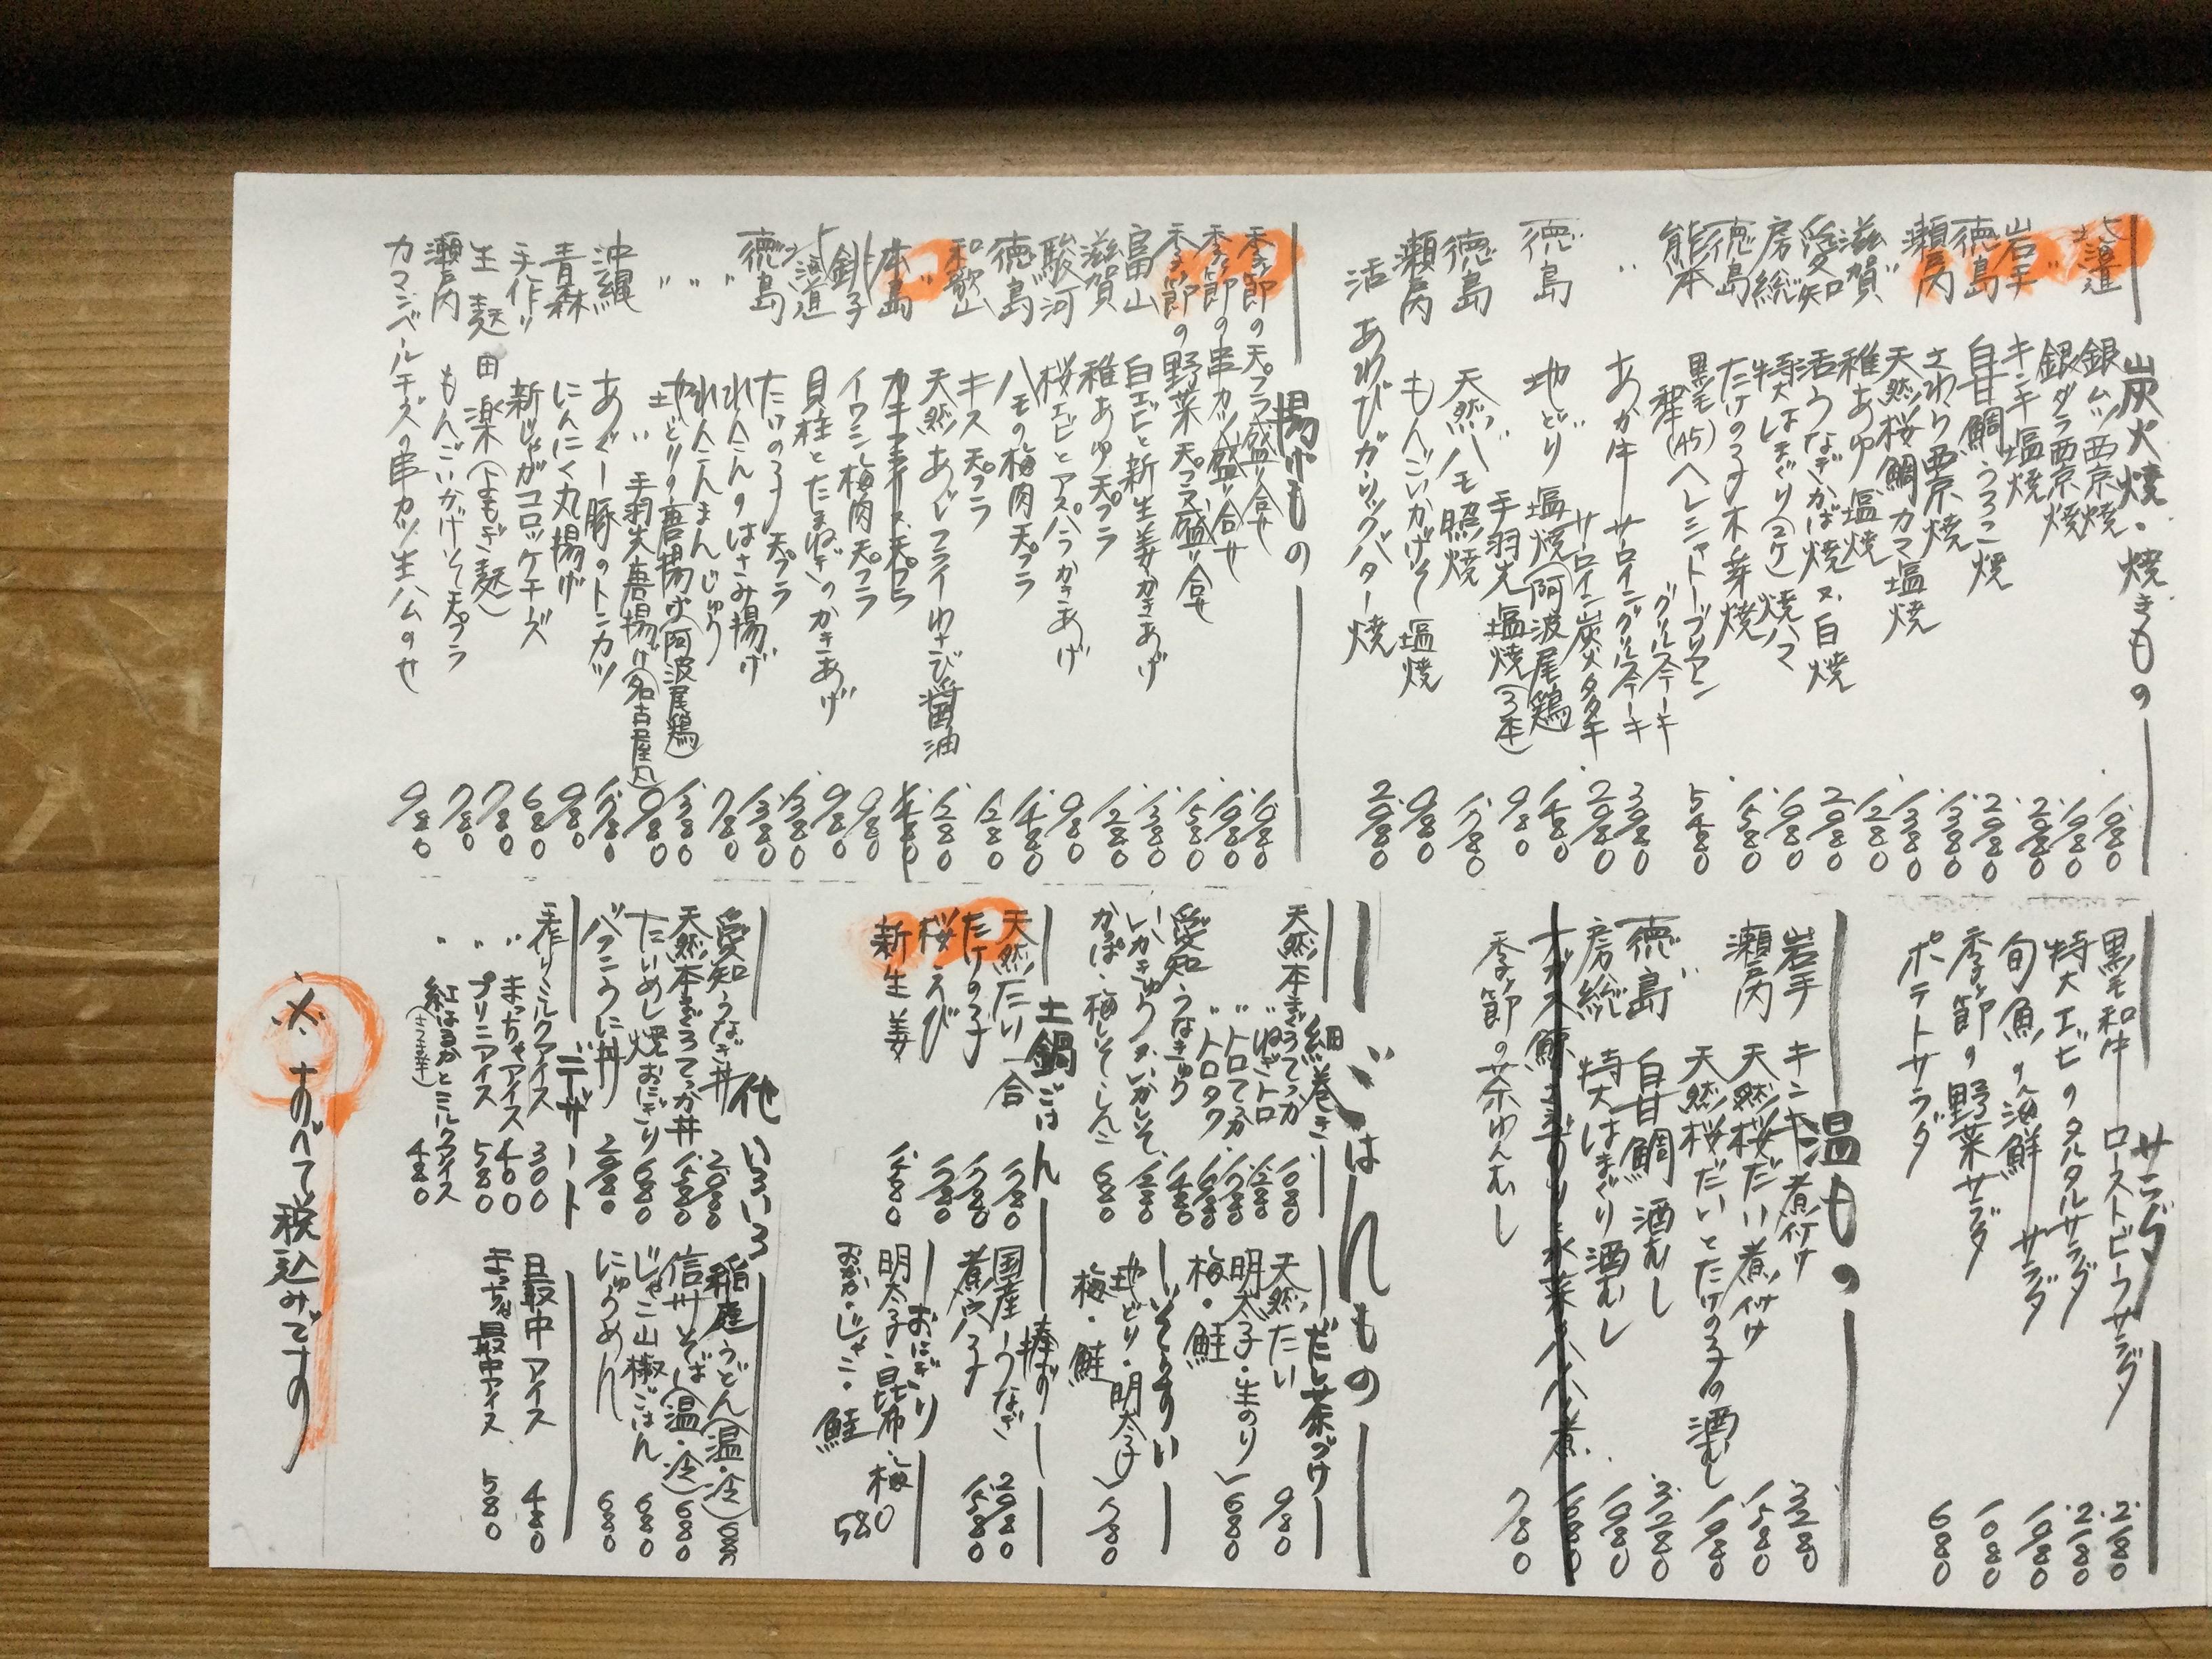 炭火焼・焼きもの
北海道 銀ムツ西京焼 1,980
〃 銀ダラ西京焼 1,980
岩手 キンキ塩焼
徳島 白甘鯛うろこ焼
瀬戸内 さわら西京焼 1,380
〃 天然桜鯛カマ塩焼 1,380
滋賀 稚あゆ塩焼 1,280
愛知 活うなぎかば焼 又 白焼 2,980
房総 特大はまぐり(2ケ)焼ハマ 1,980
徳島 たけのこ木の芽焼 1,580
熊本 黒毛和牛(A5)ヘレシャトーブリアン
グリルステーキ 5,480
〃 あか牛 サーロイングリルステーキ 3,980
サーロイン炭火タタキ 2,980
徳島 地どり 塩焼(阿波尾鶏) 1,480
〃 手羽先塩焼(3本) 980
徳島 天然ハモ照焼 1,780
瀬戸内 もんごいかげそ塩焼 980
活あわびガーリックバター焼 2,980
揚げもの
季節の天プラ盛り合せ 1,980
季節の串カツ盛り合せ 1,980
季節の野菜天プラ盛り合せ 1,580
富山 白エビと新生姜かきあげ 1,380
滋賀 稚あゆ天プラ 1,280
駿河 桜エビとアスパラかきあげ 980
徳島 ハモの梅肉天プラ 1,480
和歌山 キス天プラ 1,280
〃 天然あじフライわさび醤油 1,280
銚子 イワシ梅肉天プラ 980
北海道 貝柱とたまねぎのかきあげ 980
徳島 たけのこ天プラ 1,380
〃 れんこんのはさみ揚げ 1,380
〃 れんこんまんじゅう 780
〃 地どりの唐揚げ(阿波尾鶏) 1,380
〃 手羽先唐揚げ(名古屋風) 980
沖縄 あぐー豚のトンカツ 1,780
青森 にんにく丸揚げ 980
手作り 新じゃがコロッケチーズ 680
生麩田楽(よもぎ麩) 780
瀬戸内 もんごいかげそ天プラ 780
カマンベールチーズの串カツ生ハムのせ 980
サラダ
黒毛和牛ローストビーフサラダ 2,180
特大エビのタルタルサラダ 2,180
旬魚の海鮮サラダ 1,980
季節の野菜サラダ 1,080
ポテトサラダ 680
温もの
岩手 キンキ煮付け 3,280
瀬戸内 天然桜だい煮付け 1,580
〃 天然桜だいとたけの子の酒むし 1,980
徳島 白甘鯛 酒むし 3,280
房総 特大はまぐり酒むし 1,980
ナガス鯨さえずりと水菜のハリハリ煮 1,680
季節の茶わんむし 780
ごはんもの
細巻き
天然本まぐろてっか 1,080
〃 ねぎトロ 1,280
〃 トロてっか 1,780
〃 トロタク 1,680
愛知 うなきゅう 1,480
いかきゅう・いかしそ 1,280
かっぱ・梅しそ・しんこ 680
だし茶づけ
天然たい 980
明太子・生のり
梅・鮭 680
いそぞうすい
地どり・明太子
梅・鮭 780
土鍋ごはん
天然たい 一合 1,780
たけの子 1,780
桜えび 1,780
新生姜 1,580
棒ずし
国産うなぎ 2,980
煮穴子 1,580
おにぎり
明太子・昆布・梅
おかか・じゃこ・鮭 580
他いろいろ
愛知うなぎ丼 2,980
天然本まぐろてっか丼 1,580
たいめし焼おにぎり 680
バフンうに丼 2,980
稲庭うどん(温・冷) 680
信州そば(温・冷) 680
じゃこ山椒ごはん 680
にゅうめん 680
デザート
手作りミルクアイス 300
〃 まっちゃアイス 400
〃 プリンアイス 580
〃 紅はるかとミルクアイス 480
(さつま芋)
最中アイス 480
まっちゃ最中アイス 580
※すべて税込みです